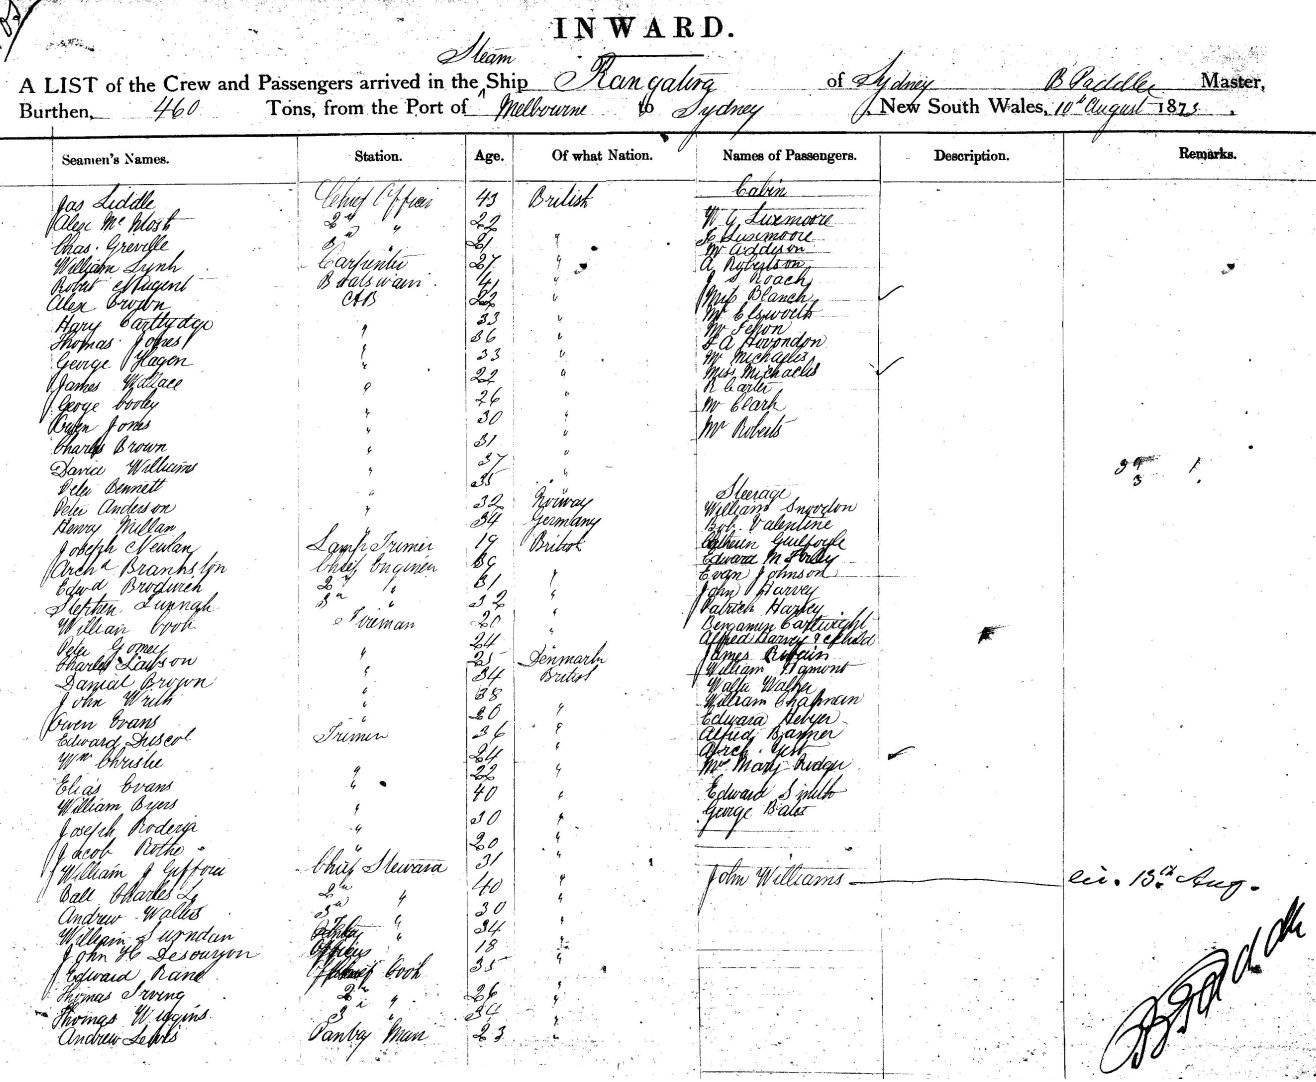 INWARD.
Steam
A LIST of the Crew and Passengers arrived in the Ship Rangatira of Sydney B Paddle Master,
Burthen, 460 Tons, from the Port of Melbourne to Sydney, New South Wales, 10th August 1873.
Seamen's Names. Station. Age. Of what Nation. Names of Passengers. Description. Remarks.
Cabin
Jas Liddle Chief Officer 43 British
Alex Mc 2nd " 22 W G Luxmoore
Chas. Greville 3rd " 21 " Luxmoore
Mr Addison
William Lynh Carpenter 27 " A Robertson
Robert Nugent Boatswain 41 " Roach
Alex Brown AB 22 " Mrs Blanch
Hary Cartlydge 33 " Mr Elsworth
Thomas Jones " 36 " Mr
George Hagen " 33 " Mr Michaelis
James Wallace " 22 " Miss Michaelis
R Carter
George Cooley " 26 " Mr Clark
Owen Jones " 30 " Mr Roberts
Charles Brown " 31 "
David Williams " 37 "
Peter Bennett " 35 "
Steerage
Peter Anderson " 32 Norway William Snowdon
Henry Millan " 34 Germany Bob Valentine
Joseph Newlan Lamp Trimer 19 British Guilfoyle
Archd Chief Engineer 39 Edward
Edwd Brodrich 2nd " 31 " Evan Johnson
Stephen 3rd " 32 " John Harvey
Patrick Harvey
William Cook Fireman 20 " Benjamin Cartwright
Peter Gomey " 24 " Alfred Harvey & Child
Charles Lawson " 25 Denmark James
Danial Brown " 34 British William Hamont
John " 38 Walter Walker
Owen Evans " 20 " William Chapman
Edward Driscol Trimer 36 " Edward
Wm Christie 24 " Alfred Banner
Arch.
Elias Evans " 22 " Mrs Mary
William Byers " 40 " Edward Smith
Joseph " 30 " George Bates
Jacob Rothe " 20 "
William J Gifford Chief Steward 31 " John Williams liv. 13th Aug.
Ball Charles L 2nd " 40 "
Andrew Wallis 3rd " 30 "
William " 34 "
John H Officers 18 "
Edward Rane Chief Cook 35 "
Thomas Irving 2nd " 26 "
Thomas Wiggins 3 " 34 "
Andrew Lewis Pantry Man 23 "
B Paddle